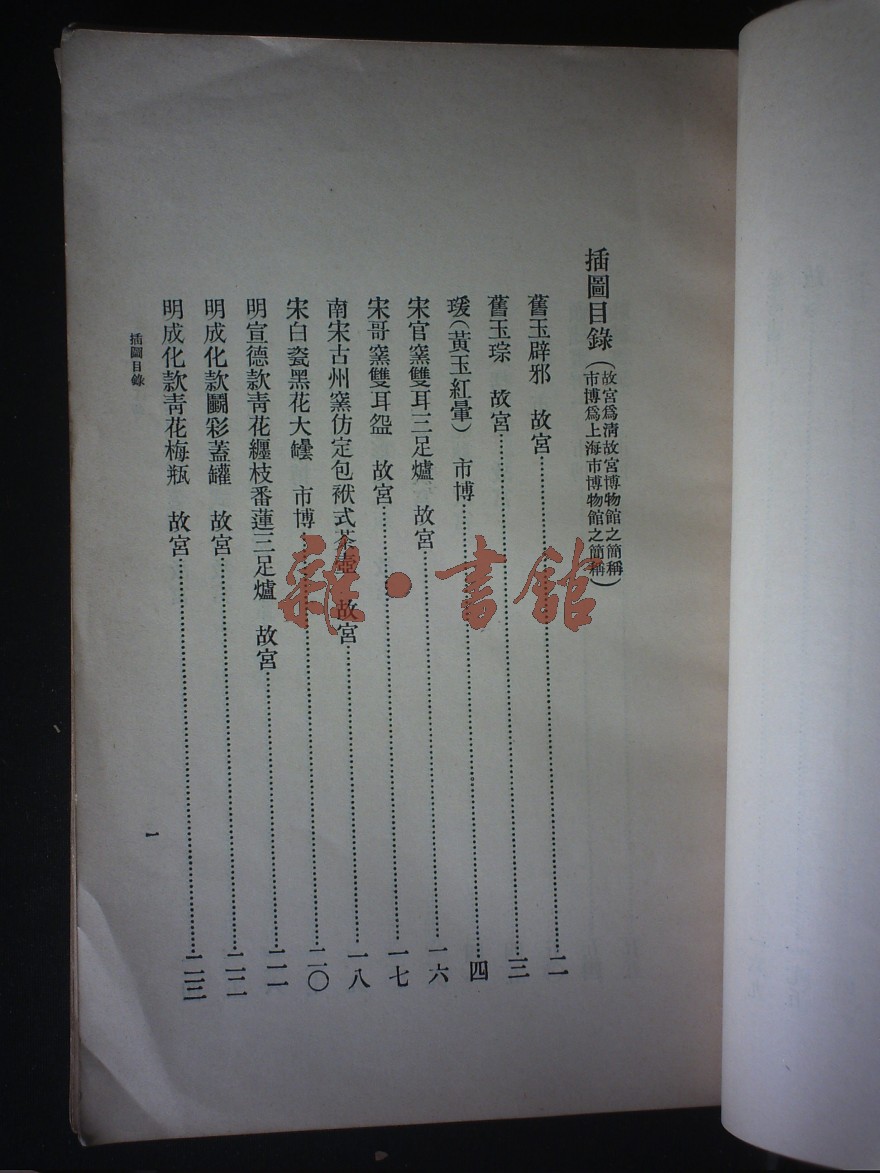 插圖目錄(故宮爲淸故宮博物館之簡稱
市博爲上海市博物館之簡稱)
舊玉辟邪 故宮…………二
舊玉琮 故宮…………三
瑗(黃玉紅暈) 市博…………四
宋官窯雙耳三足爐 故宮…………一六
宋哥窯雙耳盌 故宮…………一七
南宋古州窯仿定包袱式茶壺 故宮…………一八
宋白瓷黑花大罎 市博…………二〇
明宣德款靑花纏枝番蓮三足爐 故宮…………二一
明成化款鬬彩蓋罐 故宮…………二二
明成化款靑花梅瓶 故宮…………二三
插圖目錄
一
雜·書館